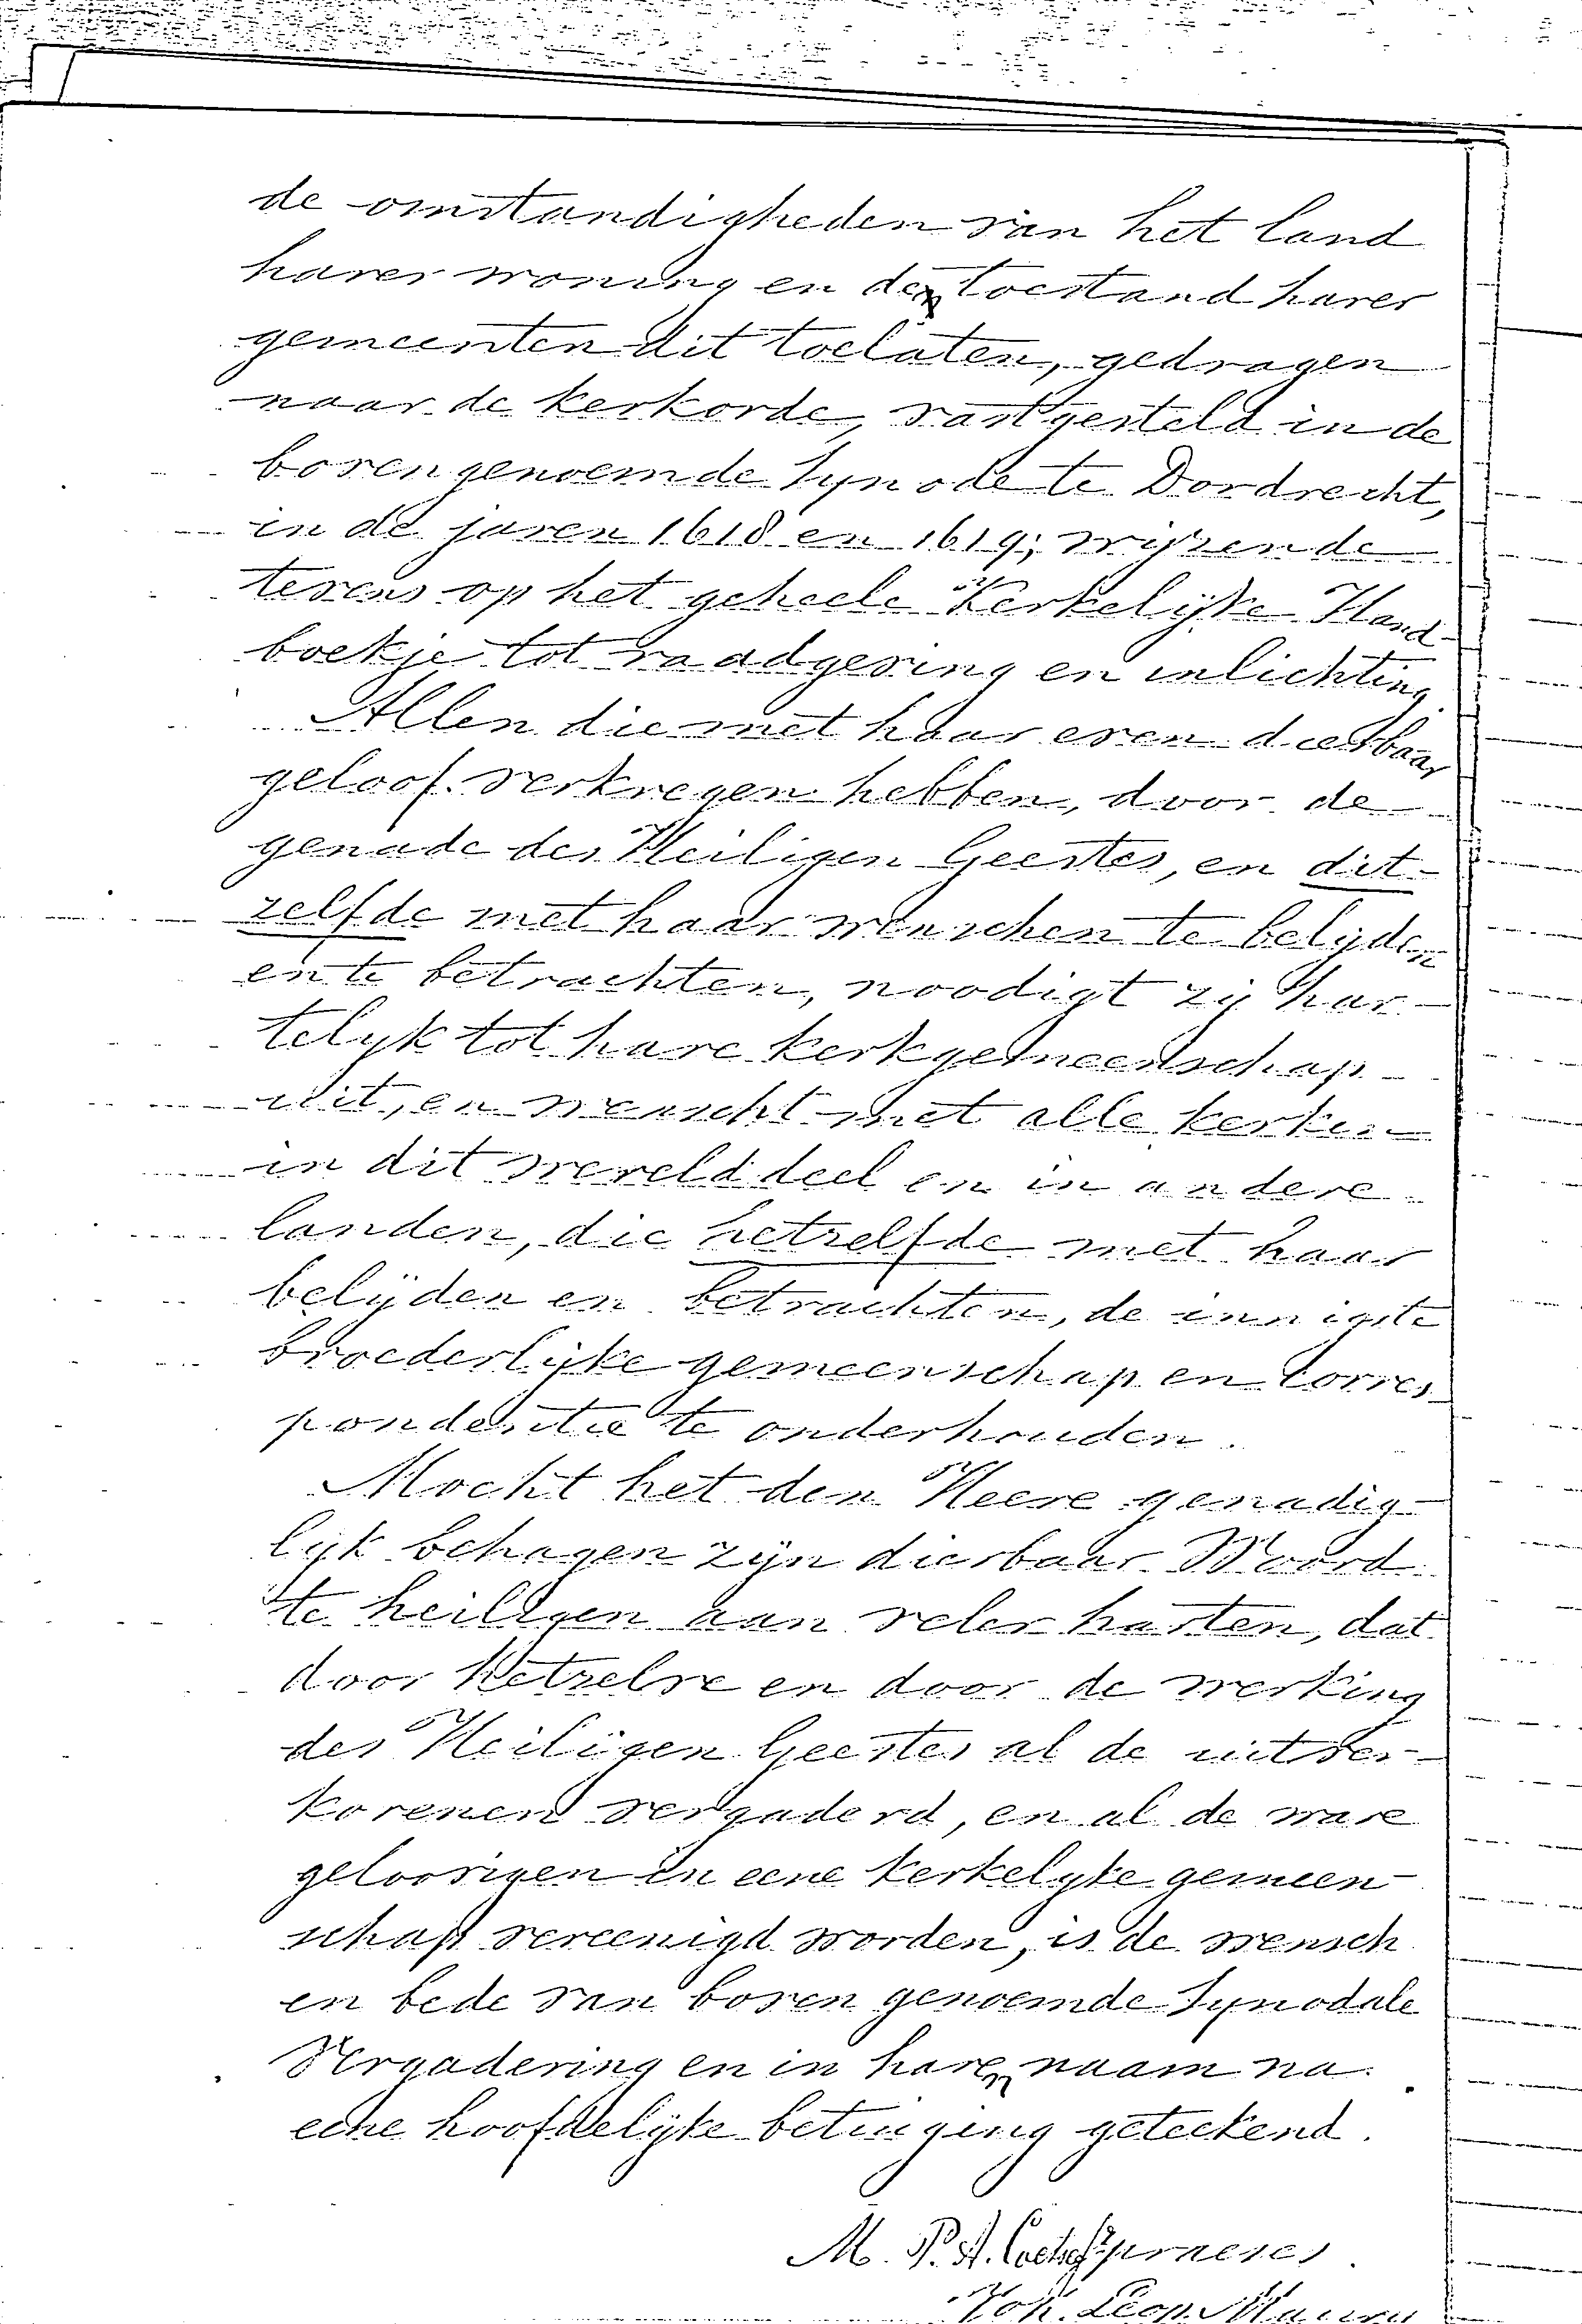 de omstandigheden van het land
harer woning en de toestand harer
gemeenten dit toelaten, gedragen
naar de kerkorde, vastgesteld in de
bovengenoemde Synode te Dordrecht,
in de jaren 1618 en 1619; wijzende
tevens op het geheele Kerkelijke Hand-
boekje tot raadgeving en inlichting.
Allen die met haar even dierbaar
geloof verkregen hebben, door de
genade des Heiligen Geestes, en dit-
zelfde met haar wenschen te belijden
en te betrachten, noodigt zij har-
telijk tot hare kerkgemeenschap
uit, en wenscht met alle kerken
in dit werelddeel en in andere
landen, die hetzelfde met haar
belijden en betrachten, de innigste
broederlijke gemeenschap en Corres-
pondentie te onderhouden.
Mocht het den Heere genadig-
lijk behagen zijn dierbaar Woord
te heiligen aan veler harten, dat
door hetzelve en door de werking
des Heiligen Geestes al de uitver-
korenen vergaderd, en al de ware
geloovigen in eene kerkelijke gemeen-
schap vereenigd worden, is de wensch
en bede van boven genoemde Synodale
Vergadering en in hare naam na
eene hoofdelijke betuiging geteekend.
M. P. A. Coetsee
Joh. Leop.